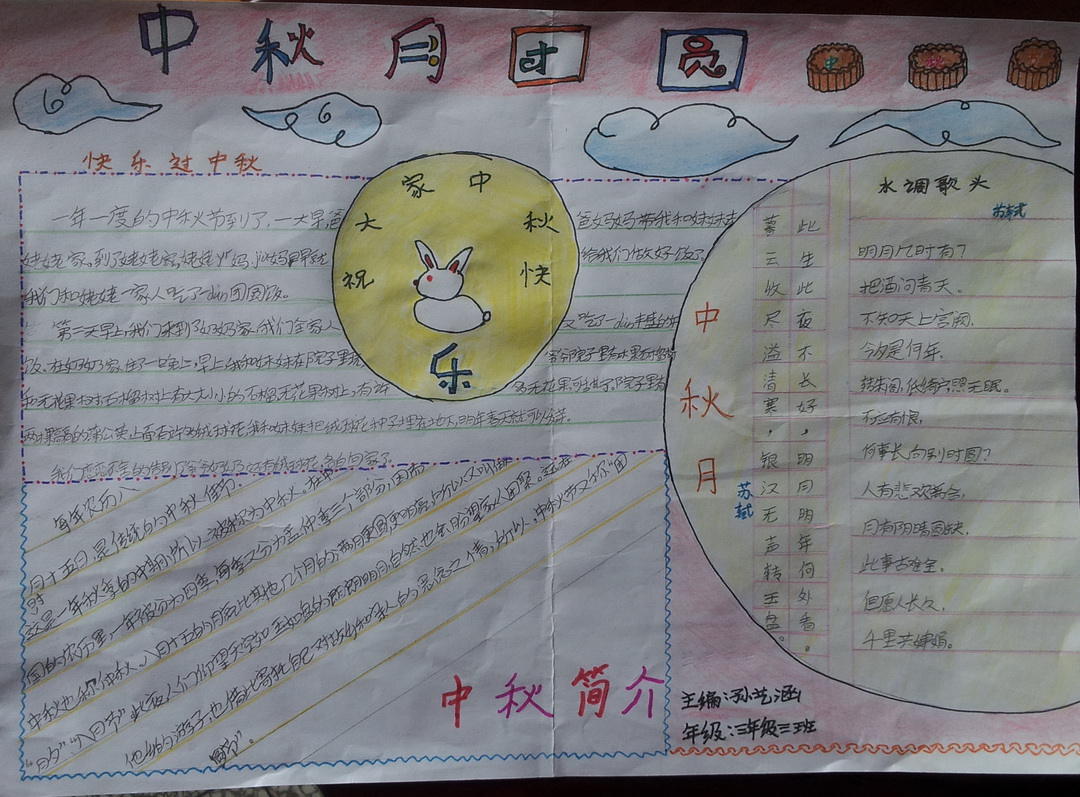 中秋月团员
中 秋
快乐过中秋
一年一度的中秋节到了,一大早爸爸妈妈带我和妹妹去
姥姥家。到了姥姥家,姥姥 给我们做好饭了。
我们和姥姥一家人吃了dùn团圆饭。
第二天早上,我们来到了奶奶家,我们全家人又吃了dùn丰盛的
饭。在奶奶家住了一晚上,早上我和妹妹在院子里玩
石榴树上有大大小小的石榴,无花果树上,有许多无花果
我和妹妹把绒球花种子埋在地下,明年春天就可以
祝大家中秋快乐
每年农历八
月十五日,是传统的中秋佳节。
这是一年秋季的中期,所以被称为中秋。在中
国的农历里,一年被分为四季,每季又分为孟、仲、季三个部分,因而
中秋也称仲秋。八月十五的月亮比其他几个月的满月更圆,更明亮,所以又叫做
“月夕”“八月节”。此夜,人们仰望天空如玉如盘的朗朗明月,自然也会盼望家人团聚。远在
他乡的游子,也借此寄托自己对故乡和亲人的思念之情,所以,中秋节又称“团
圆节”。
中秋简介
中秋月
苏轼
暮云收尽溢清寒,银汉无声转玉盘。
此生此夜不长好,明月明年何处看。
水调歌头
苏轼
明月几时有?
把酒问青天。
不知天上宫阙,
今夕是何年。
转朱阁,低绮户,照无眠。
不应有恨,
何事长向别时圆?
人有悲欢离合,
月有阴晴圆缺,
此事古难全。
但愿人长久,
千里共婵娟。
主编:孙艺涵
年级:三年级三班